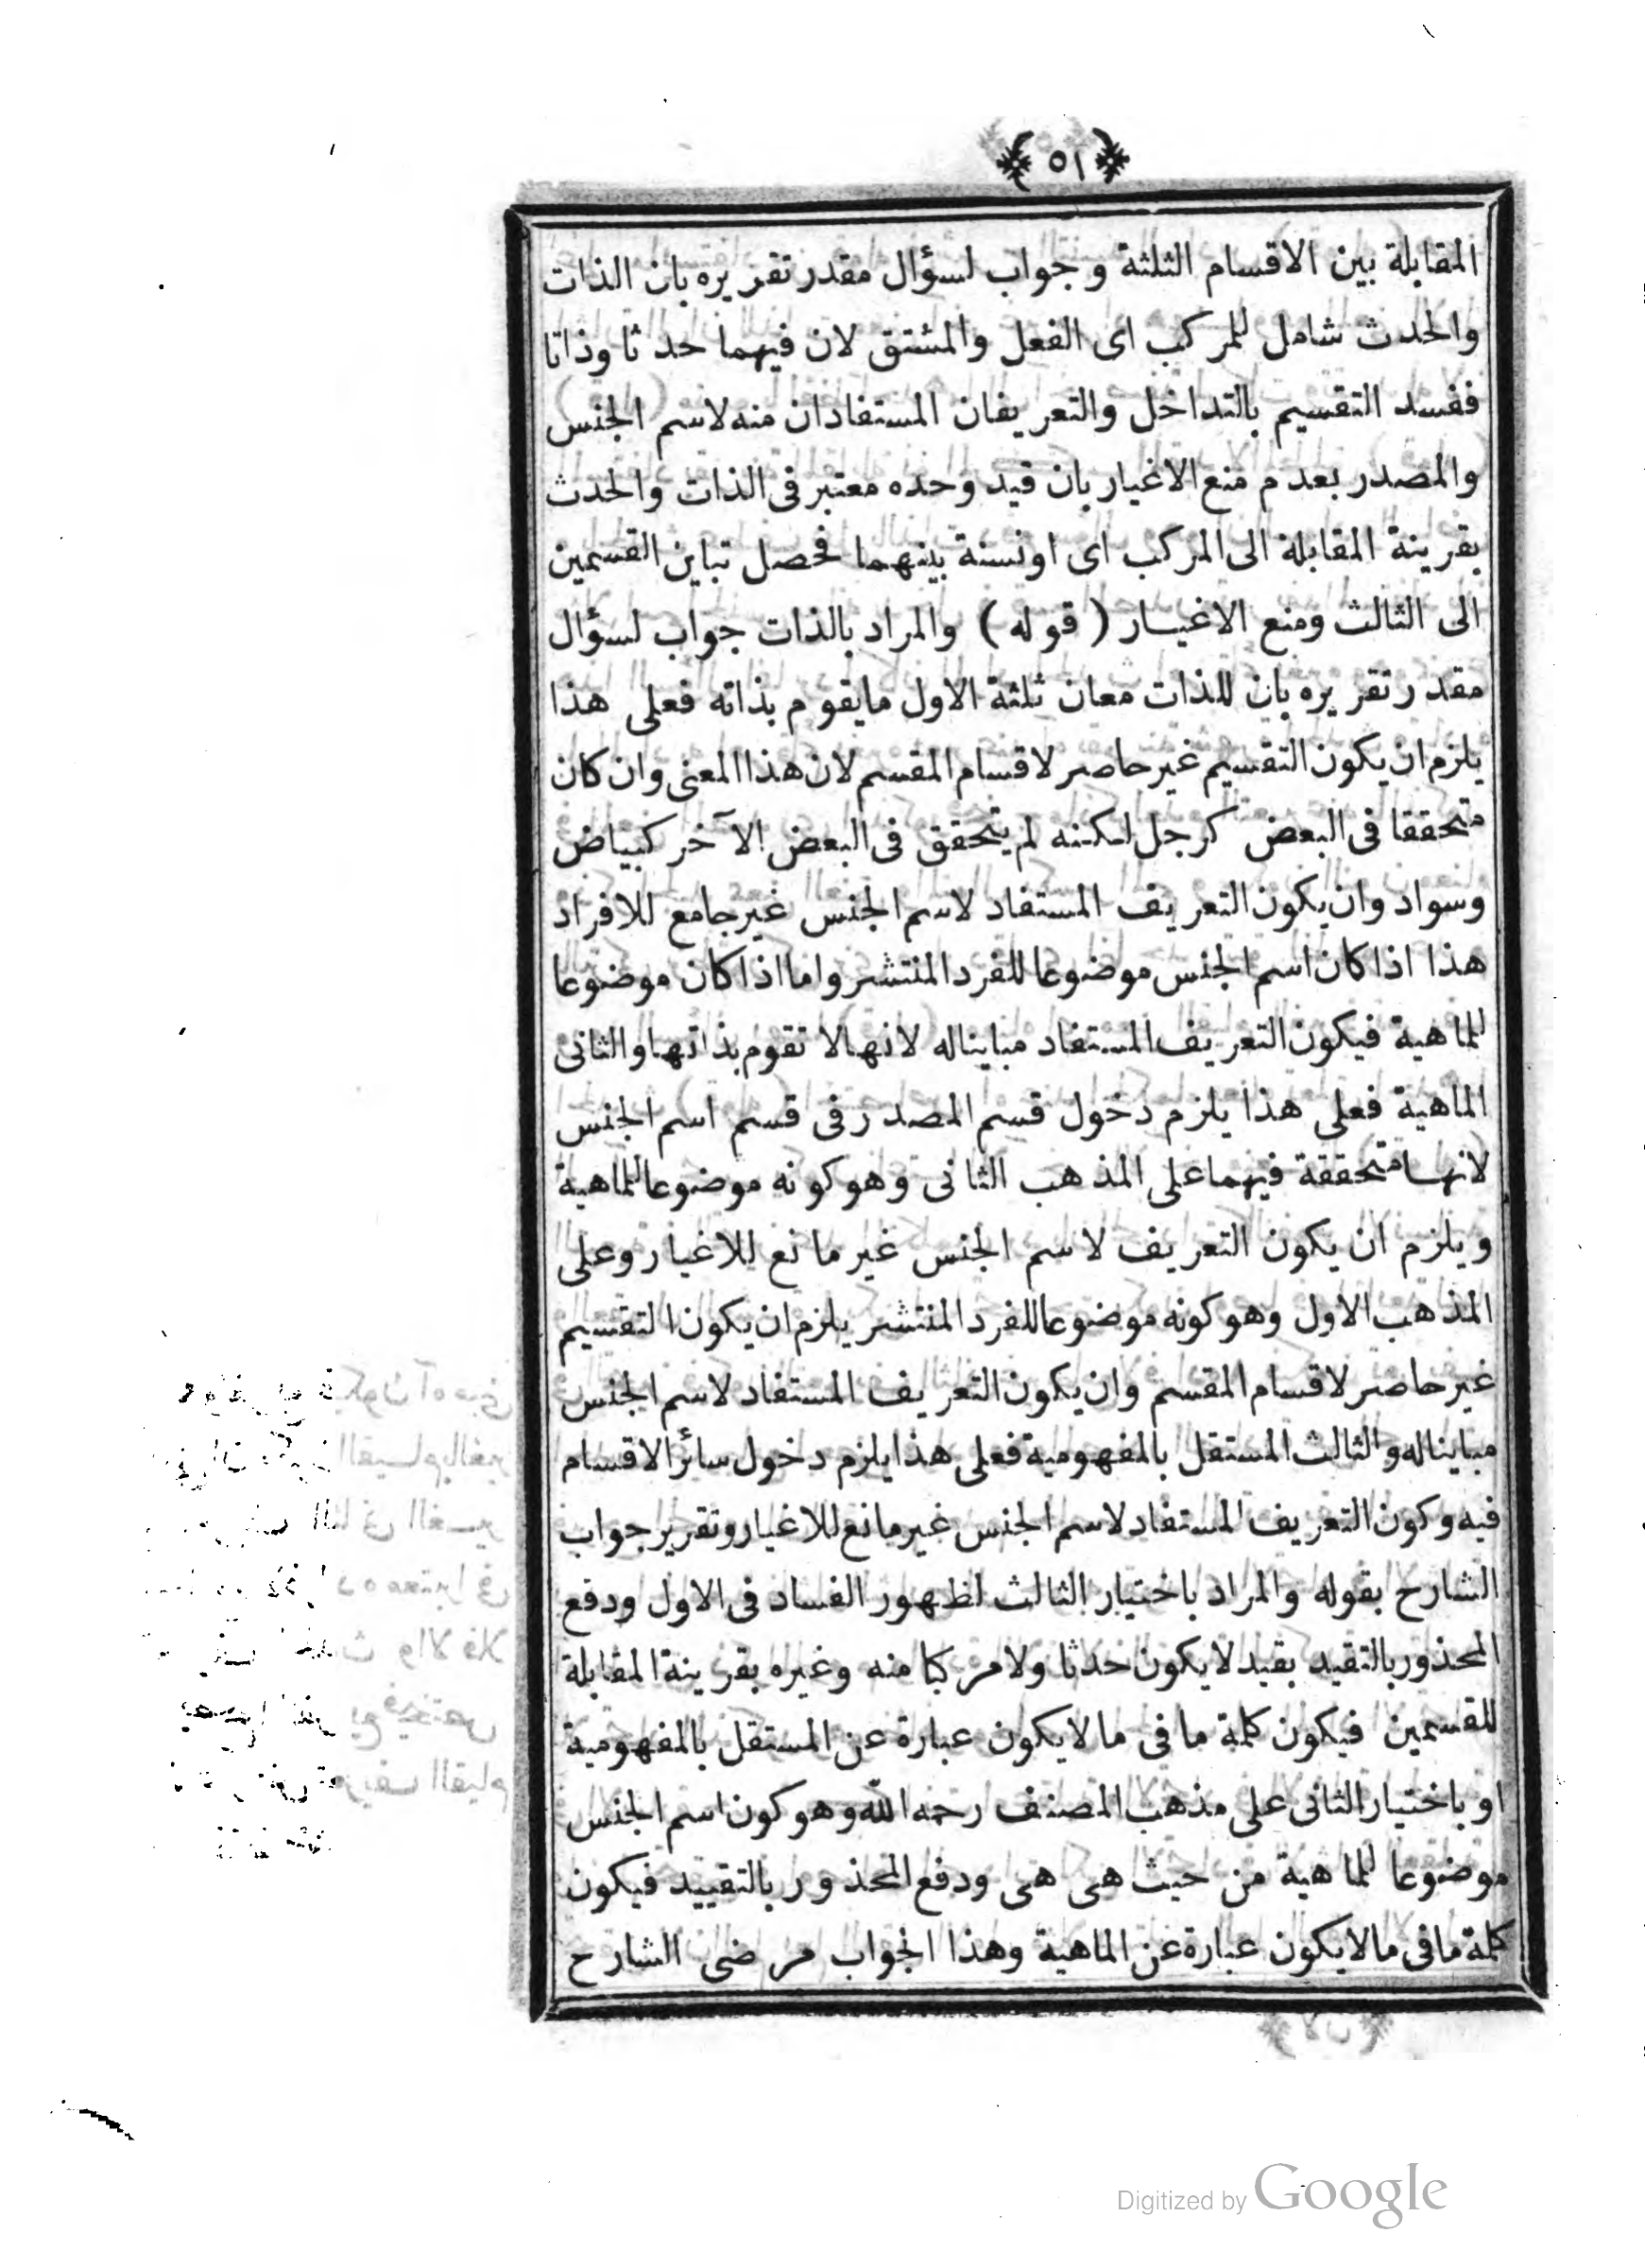 ﴿ ٥١ ﴾
المقابلة بين الاقسام الثلثة وجواب لسؤال مقدر تقريره بان الذات
والحدث شامل للمركب اى الفعل والمشتق لان فيهما حدثا وذاتا
ففسد التقسيم بالتداخل والتعريفان المستفادان منه لاسم الجنس
والمصدر بعدم منع الاغيار بان قيد وحده معتبر فى الذات والحدث
بقرينة المقابلة الى المركب اى اونسنة بينهما فحصل تباين القسمين
الى الثالث ومنع الاغيار ( قوله ) والمراد بالذات جواب لسؤال
مقدر تقريره بان للذات معان ثلثة الاول مايقوم بذاته فعلى هذا
يلزم ان يكون التقسيم غير حاصر لاقسام المقسم لان هذا المعنى وان كان
متحققا فى البعض كرجل لكنه لم يتحقق فى البعض الآخر كبياض
وسواد وان يكون التعريف المستفاد لاسم الجنس غير جامع للافراد
هذا اذا كان اسم الجنس موضوعا للفرد المنتشر واما اذا كان موضوعا
للماهية فيكون التعريف المستفاد مباينا له لانها لا تقوم بذاتها والثانى
الماهية فعلى هذا يلزم دخول قسم المصدر فى قسم اسم الجنس
لانها متحققة فيهما على المذهب الثانى وهو كونه موضوعا للماهية
ويلزم ان يكون التعريف لاسم الجنس غير مانع للاغيار وعلى
المذهب الاول وهو كونه موضوعا للفرد المنتشر يلزم ان يكون التقسيم
غير حاصر لاقسام المقسم وان يكون التعريف المستفاد لاسم الجنس
مباينا له والثالث المستقل بالمفهومية فعلى هذا يلزم دخول سائر الاقسام
فيه وكون التعريف المستفاد لاسم الجنس غير مانع للاغيار وتقرير جواب
الشارح بقوله والمراد باختيار الثالث لظهور الفساد فى الاول ودفع
المحذور بالتقيد بقيد لا يكون حدثا ولا مركبا منه وغيره بقرينة المقابلة
للقسمين فيكون كلمة ما فى ما لا يكون عبارة عن المستقل بالمفهومية
او باختيار الثانى على مذهب المصنف رحمه الله وهو كون اسم الجنس
موضوعا للماهية من حيث هى هى ودفع المحذور بالتقييد فيكون
كلمة ما فى ما لا يكون عبارة عن الماهية وهذا الجواب مرضى الشارح
Digitized by Google